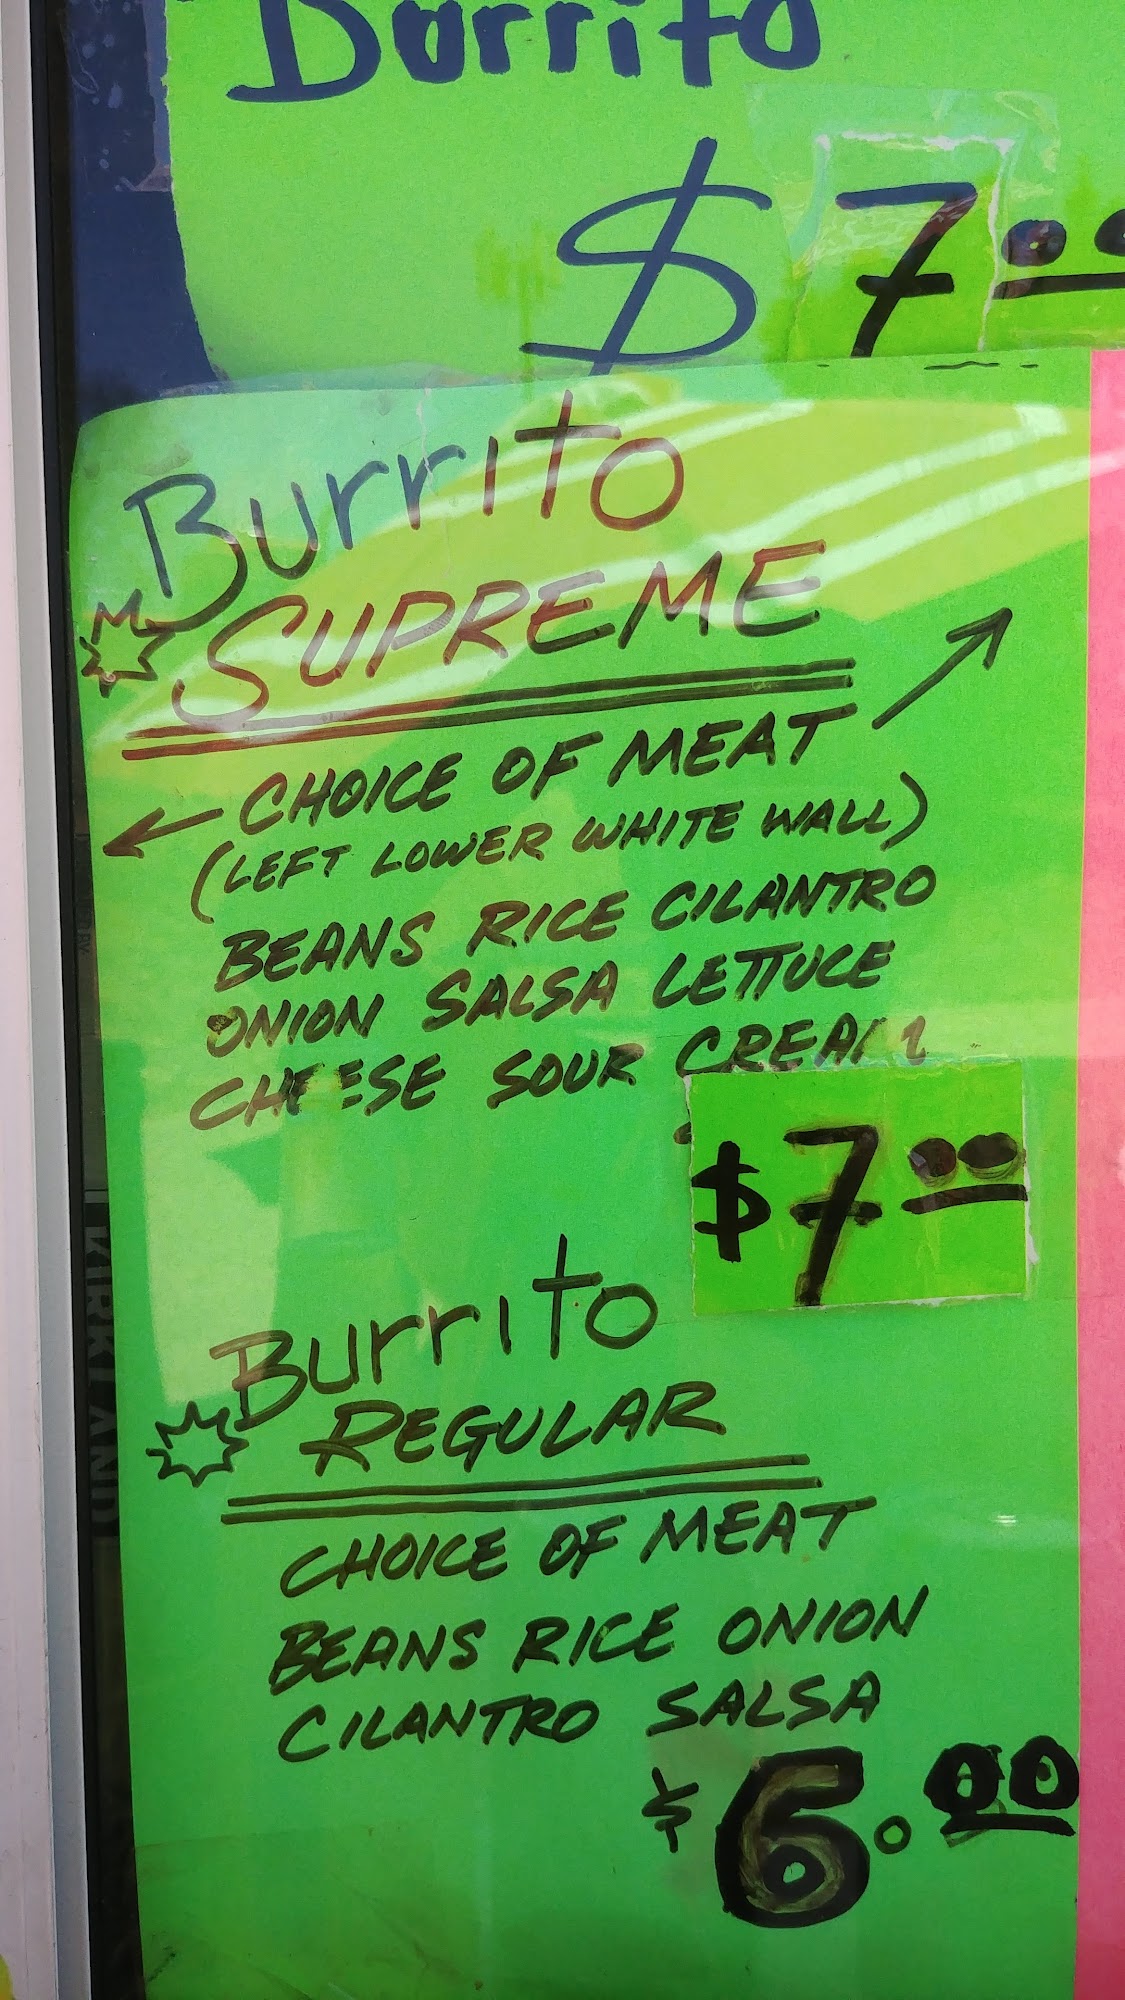 Burrito
$7.00
Burrito
SUPREME
CHOICE OF MEAT
(LEFT LOWER WHITE WALL)
BEANS RICE CILANTRO
ONION SALSA LETTUCE
CHEESE SOUR CREAM
$7.00
Burrito
REGULAR
CHOICE OF MEAT
BEANS RICE ONION
CILANTRO SALSA
$6.00
KIRKLAND